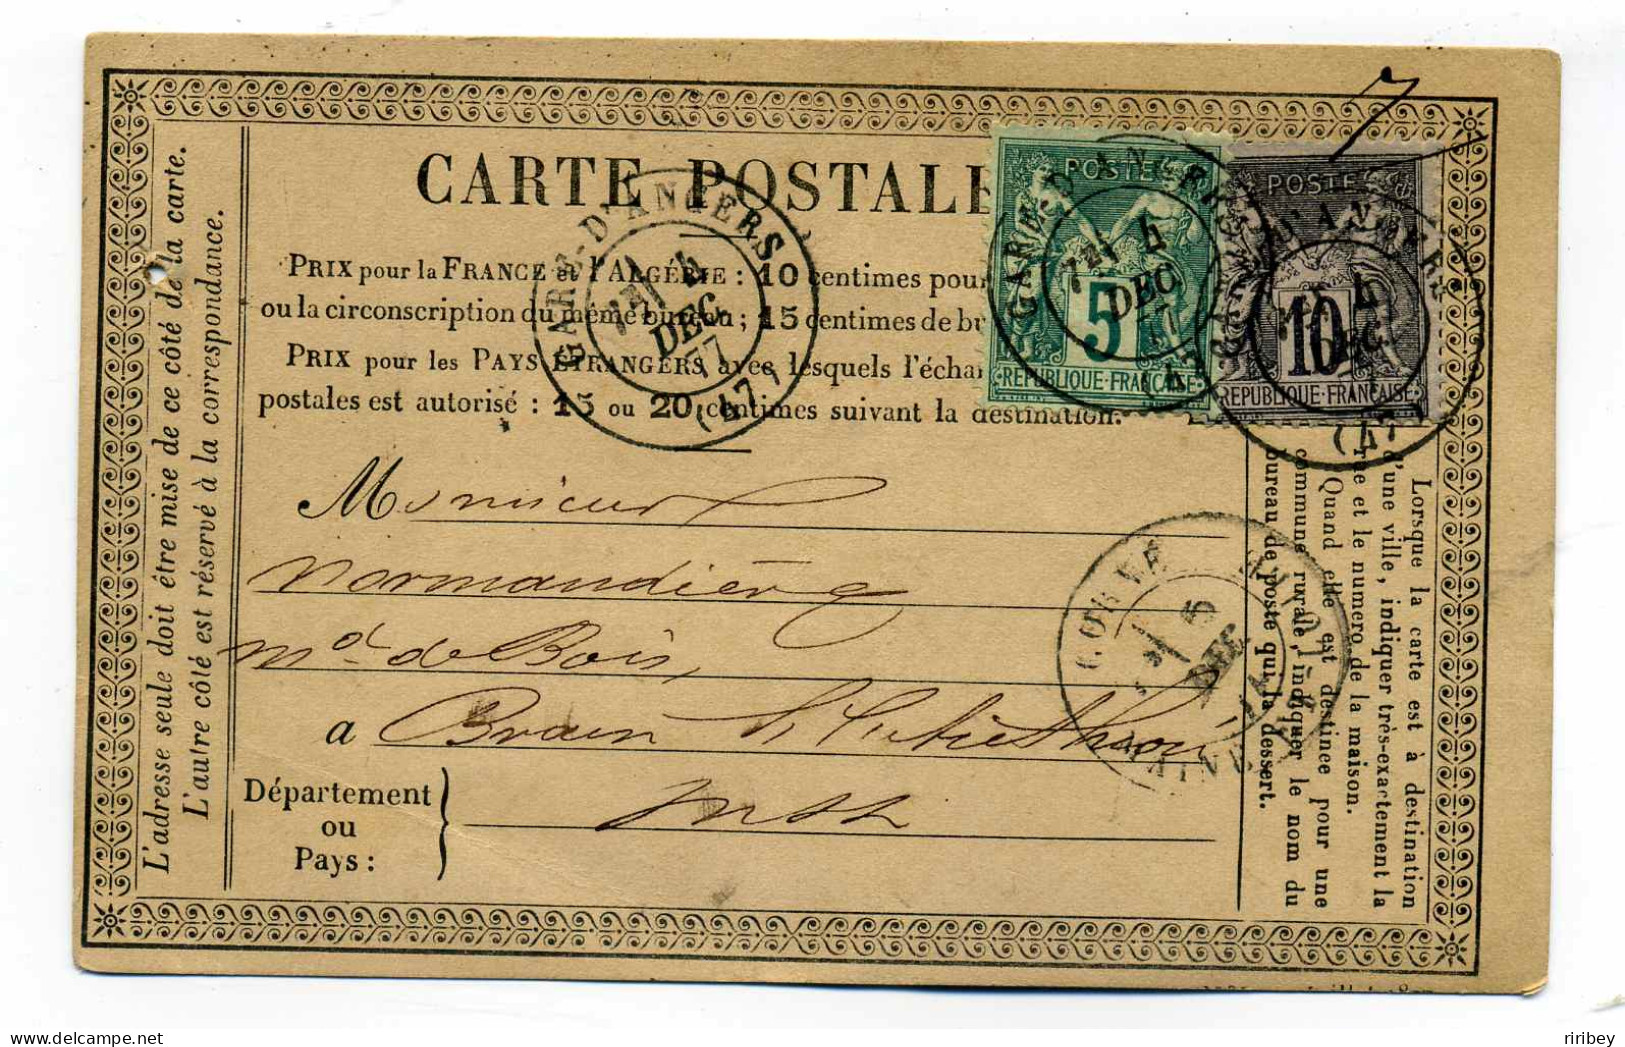 CARTE POSTALE
PRIX pour la FRANCE et l'ALGÉRIE : 10 centimes pour
ou la circonscription du même bureau ; 15 centimes de bu
PRIX pour les PAYS ÉTRANGERS avec lesquels l'échan
postales est autorisé : 15 ou 20 centimes suivant la destination.
L'adresse seule doit être mise de ce côté de la carte.
L'autre côté est réservé à la correspondance.
GARE-D'ANGERS
4
DEC
77
(47)
POSTES
5
REPUBLIQUE·FRANÇAISE
GARE-D'ANGERS
4
DEC
(47)
POSTES
10
REPUBLIQUE·FRANÇAISE
GARE-D'ANGERS
4
DEC
(47)
7
Monsieur
Normandière
Md de Bois,
a Brain
Département
ou
Pays :
5
DEC
Lorsque la carte est à destination
d'une ville, indiquer très-exactement la
rue et le numéro de la maison.
Quand elle est destinée pour une
commune rurale, indiquer le nom du
bureau de poste qui la dessert.
riribey